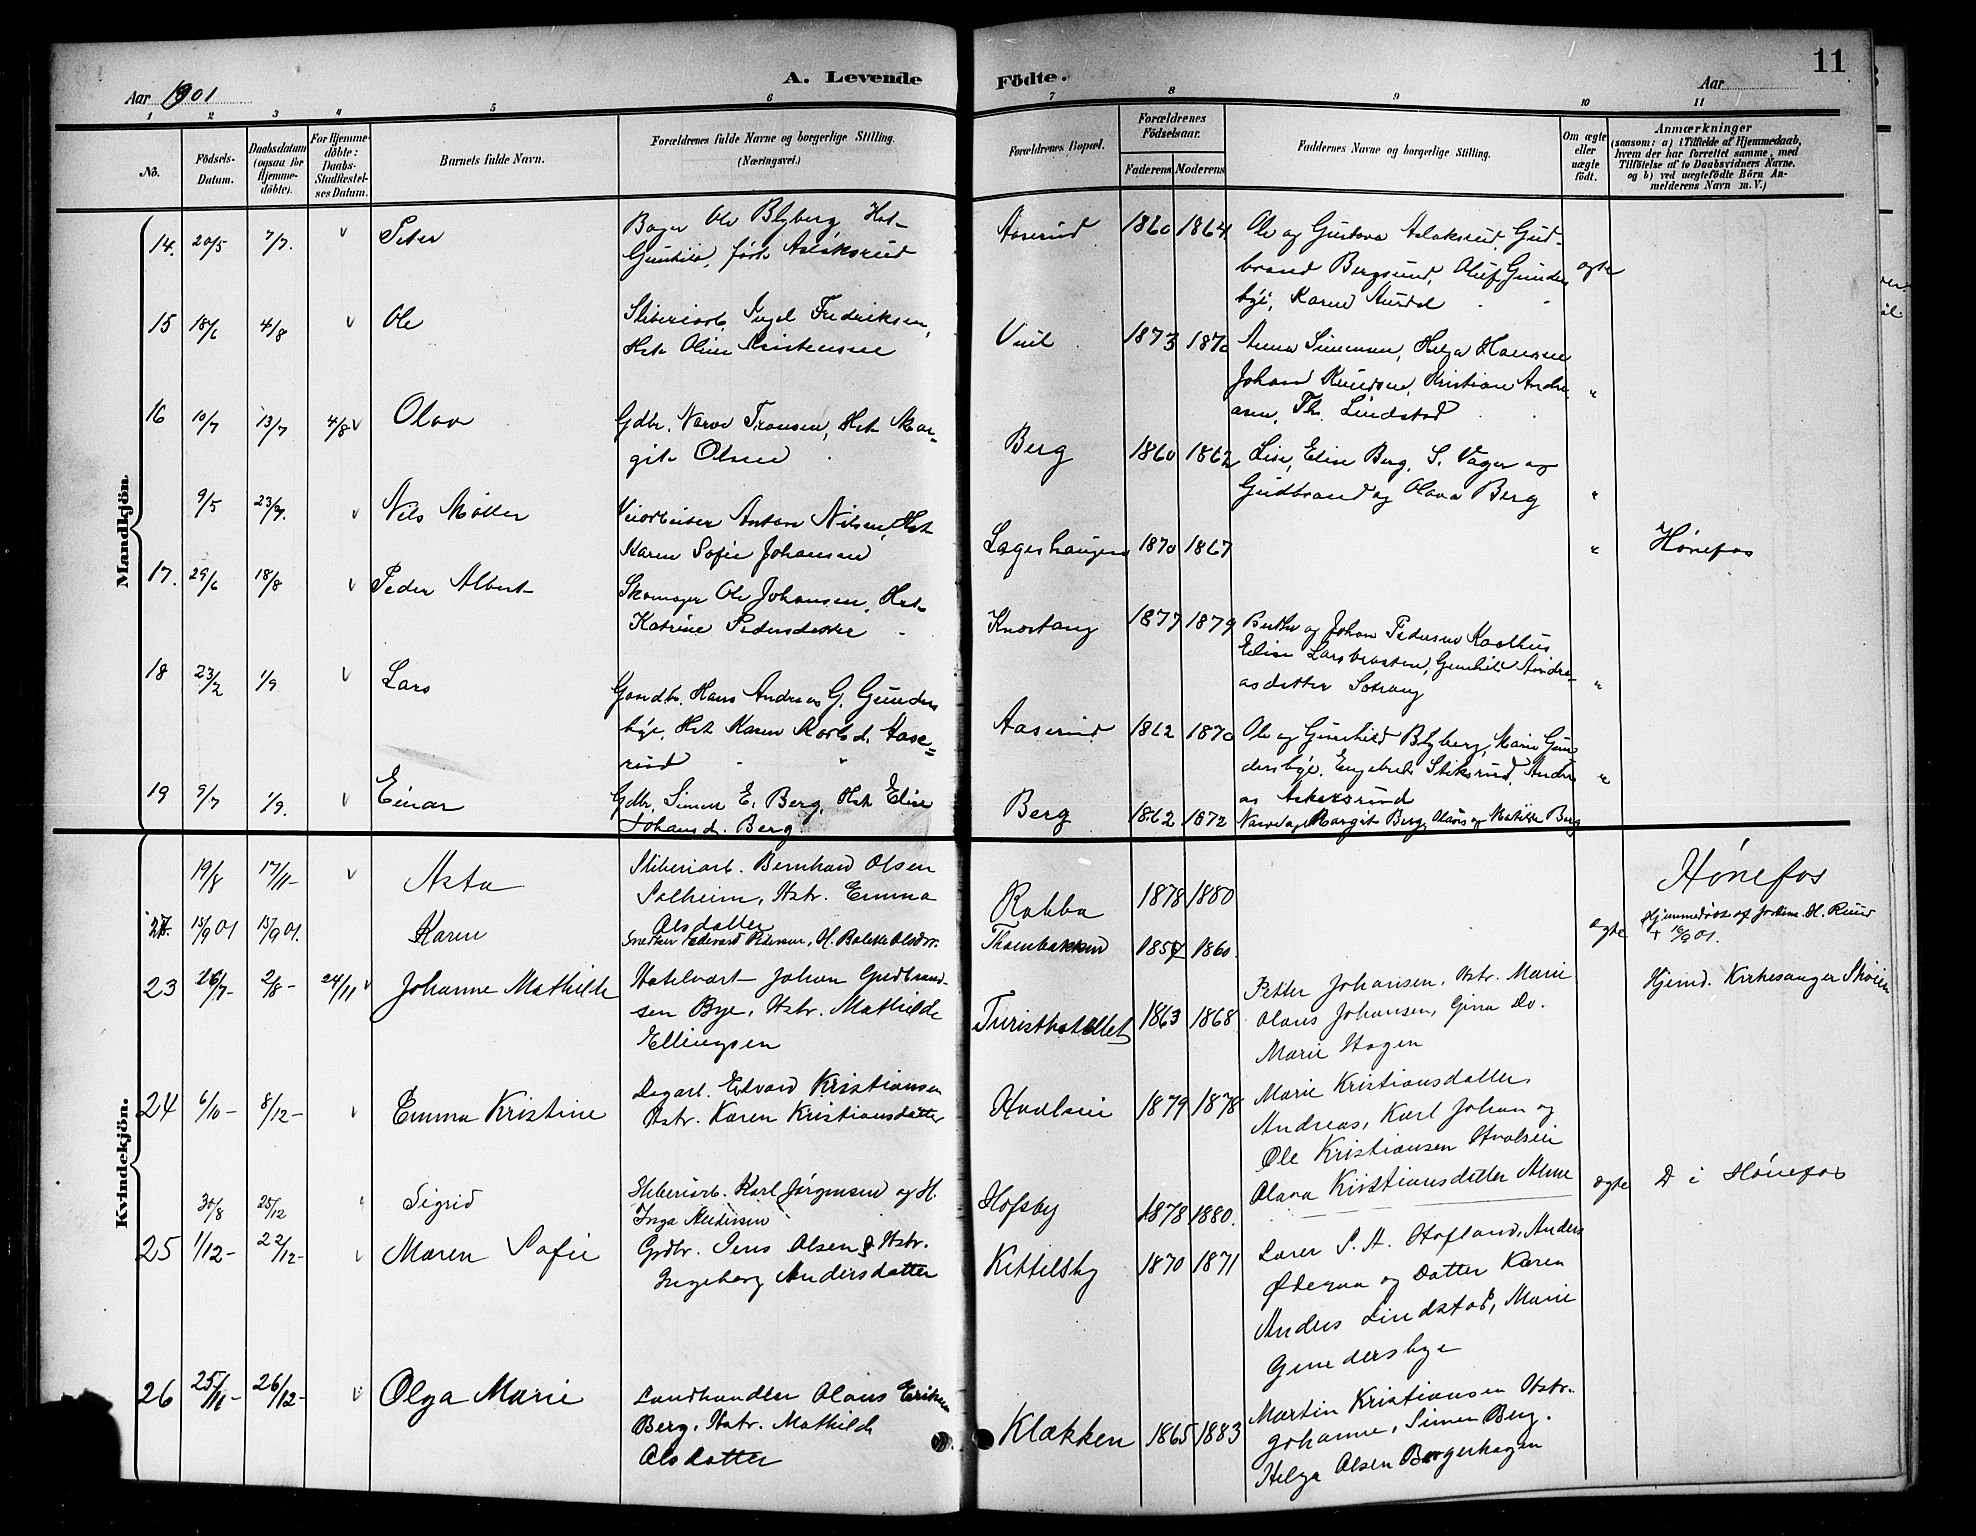 11
A. Levende Födte.
Aar 1901
Aar
1 2 3 4 5 6 7 8 9 10 11
No.
Födsels-Datum.
Daabsdatum (ogsaa for Hjemme-döbte).
For Hjemme-döbte: Daabs-Stadfæstel-ses Datum.
Barnets fulde Navn.
Forældrenes fulde Navne og borgerlige Stilling. (Næringsvei.)
Forældrenes Bopæl.
Forældrenes Födselsaar.
Faderens Moderens
Faddernes Navne og borgerlige Stilling.
Om ægte eller uægte födt.
Anmærkninger
(saasom: a) i Tilfælde af Hjemmedaab, hvem der har forrettet samme, med Tilföielse af to Daabsvidners Navne, og b) ved uægtefödte Börn An-melderens Navn m. V.)
Mandkjön.
14. 20/5 7/7. v Peter
Bager Ole Blyberg, Hst.
Gunhild, født Aslaksrud
Aaserud 1860 1864
Ole og Gustava Aslaksrud, Gud-
brand Bergsund, Oluf Gunders
bye, Karen
ægte
15 18/6 4/8 v Ole
Sliberiarb. Fredriksen,
Hst. Kristensen
1873 1870
Anna Simensen, Helga Hansen
Johan Knudsen, Kristian Andre
asen, Th. Lindstad
"
16 10/7 13/7 4/8 v Olav
Gdbr. Narve Transen, Hst. Mar-
git Olsen
Berg 1860 1862
Lise, Elise Berg, S. Vager og
Gudbrand og Olava Berg
"
9/5 23/7. v Nils Møller
Veiarbeider Anton Nilsen, Hst.
Karen Sofie Johansen
1870 1867
"
Hønefos
17. 29/6 18/8 v Peder Albert
Skomager Ole Johansen, Hst.
Katrine Pedersdatter
Knestang 1877 1879
og Johan Pedersen
Elise Larsbraaten, Gunhild Andre-
asdatter Setrang
"
18 23/7 1/9 v Lars
Gaardbr. Hans Andreas G. Gunders
bye, Hst. Karen Karlsd. Aase=
rud
Aaserud 1862 1870
Ole og Gunhild Blyberg, Marie Gun
dersbye, Engebret Stiksrud, Andre
as Askersrud
"
19 9/7 1/9. v Einar
Gdbr. Simen E. Berg, Hst. Elise
Johansd. Berg
Berg 1862 1872
Narve og Margit Berg, Olaus og Matilde Berg
Kvindekjön.
19/8 17/11- v Asta
Sliberiarb. Bernhard Olsen
Solheim, Hstr. Emma
Olsdatter
Rabba 1878 1880
Hønefos
15/9 01 15/9 01. Karen
Snekker Edevard Pedersen, H. Bolette Olsdtr.
Thornbakken 1857 1860.
ægte
Hjemmedøbt af Jordm. H. Ruud
+ 16/9 01.
23 26/7- 2/8- 24/11 v Johanne Mathilde
Hotelvært Johan Gudbrand-
sen Bye, Hstr. Mathilde
Ellingsen
Turisthotellet 1863 1868
Petter Johansen, Hstr. Marie
Olaus Johansen, Gina Do.
Marie Hagen
Hjemd. Kirkesanger Skøien
24 6/10- 8/12- v Emma Kristine
Dagarb. Edvard Kristiansen
Hstr. Karen Kristiansdatter
Hvalsein 1879 1878
Marie Kristiansdatter,
Andreas, Karl Johan og
Ole Kristiansen Hvalsein
Olava Kristiansdatter Alme
30/8 25/12 Sigrid
Sliberiarb. Karl Jørgensen og H.
Inga Andersen
Hofsby 1878 1880.
ægte
D i Hønefos
25 1/12- 22/12- v Maren Sofie
Grdbr. Jens Olsen & Hstr.
Ingeborg Andersdatter
Kittilsby 1870 1871
Lærer S. A. Hofland, Anders
Øderaa og Datter Karen
Anders Lindstad, Marie
Gundersbye
26 25/11- 26/12- v Olga Marie
Landhandler Olaus Eriksen
Berg, Hstr. Mathilde
Olsdatter
Klækken 1865 1883
Martin Kristiansen Hstr.
Johanne, Simen Berg.
Helga Olsen Borgerhagen